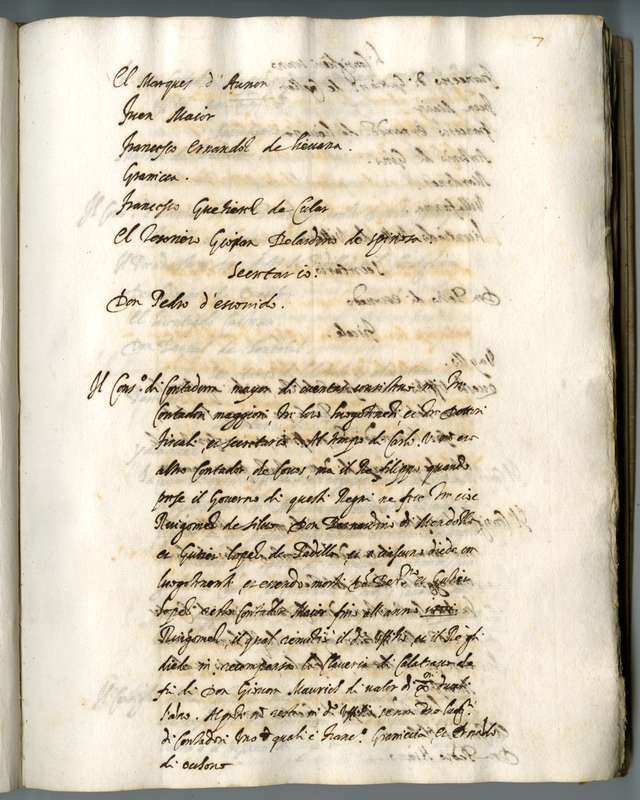 7
El Marques d'Aunon
Juan Maior
Francesco Ernandez de lieuana.
Granicca.
Francesco Gutierez de Cular
El Tesoriero Gispan Belardino de spinosa.
Secretario.
Don Pedro d'escovido.
Il Cons.o di Contadoria mayor di cuentas consisteua in Tre
Contadori maggiori, tre loro luogotenenti, et due Dottori
fiscali, et secretario. Al tempo di Carlo V. non era
altro Contador, de Couos, ma il Re filippo quando
prese il Governo di questi Regni ne fece Tre cioe
Ruigomez de silua Don Bernardino di Mendozza
et Gutier lopez de Padilla, et a ciascuno diede un
luogotenente, et essendo morti Don Ber.no et Gutier
lopez resto Contador Maior fino all'anno
Ruigomez, il qual renuntio il d.o Uffitio et il Re gli
diede in recompensa la Claueria di Calatraua da
fu di Don Gioan Maurich di valor di duati
l'anno. Al pnte no resta in d.o Uffitio se non due luog.ti
di Contadori Uno è quali è Franc.o Granicca et Ernando
di